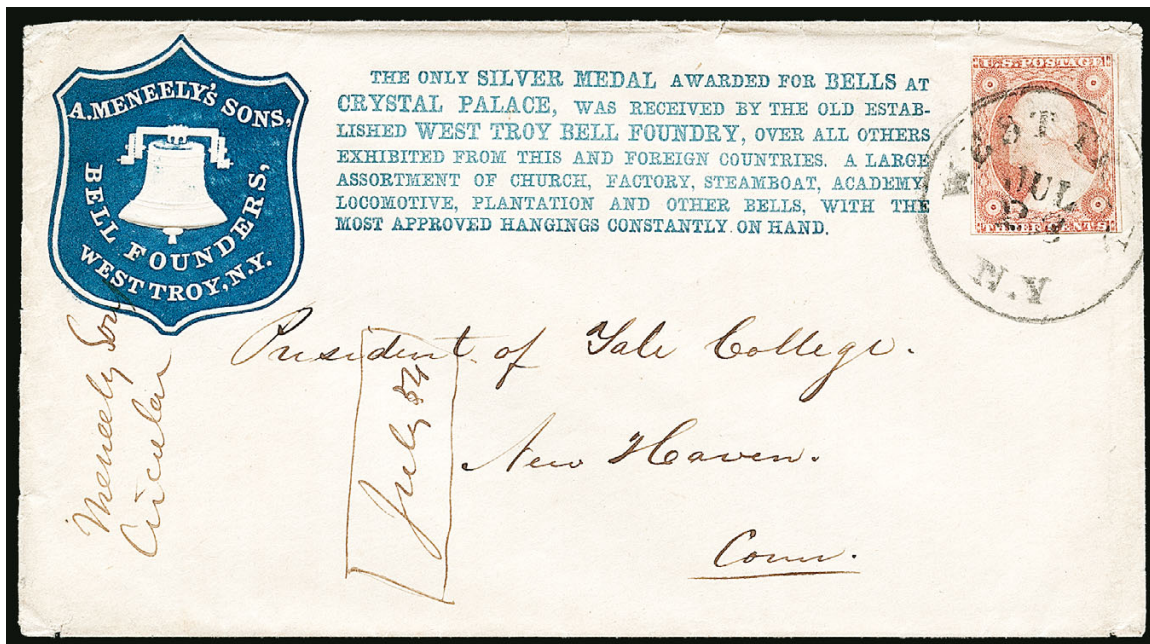 A. MENEELY'S SONS,
BELL FOUNDERS,
WEST TROY, N.Y.
THE ONLY SILVER MEDAL AWARDED FOR BELLS AT
CRYSTAL PALACE, WAS RECEIVED BY THE OLD ESTAB-
LISHED WEST TROY BELL FOUNDRY, OVER ALL OTHERS
EXHIBITED FROM THIS AND FOREIGN COUNTRIES. A LARGE
ASSORTMENT OF CHURCH, FACTORY, STEAMBOAT, ACADEMY,
LOCOMOTIVE, PLANTATION AND OTHER BELLS, WITH THE
MOST APPROVED HANGINGS CONSTANTLY ON HAND.
U.S. POSTAGE
THREE CENTS
WEST TROY
JUL
N.Y
President of Yale College.
New Haven.
Conn.
July 54
Meneely Sons
Circular